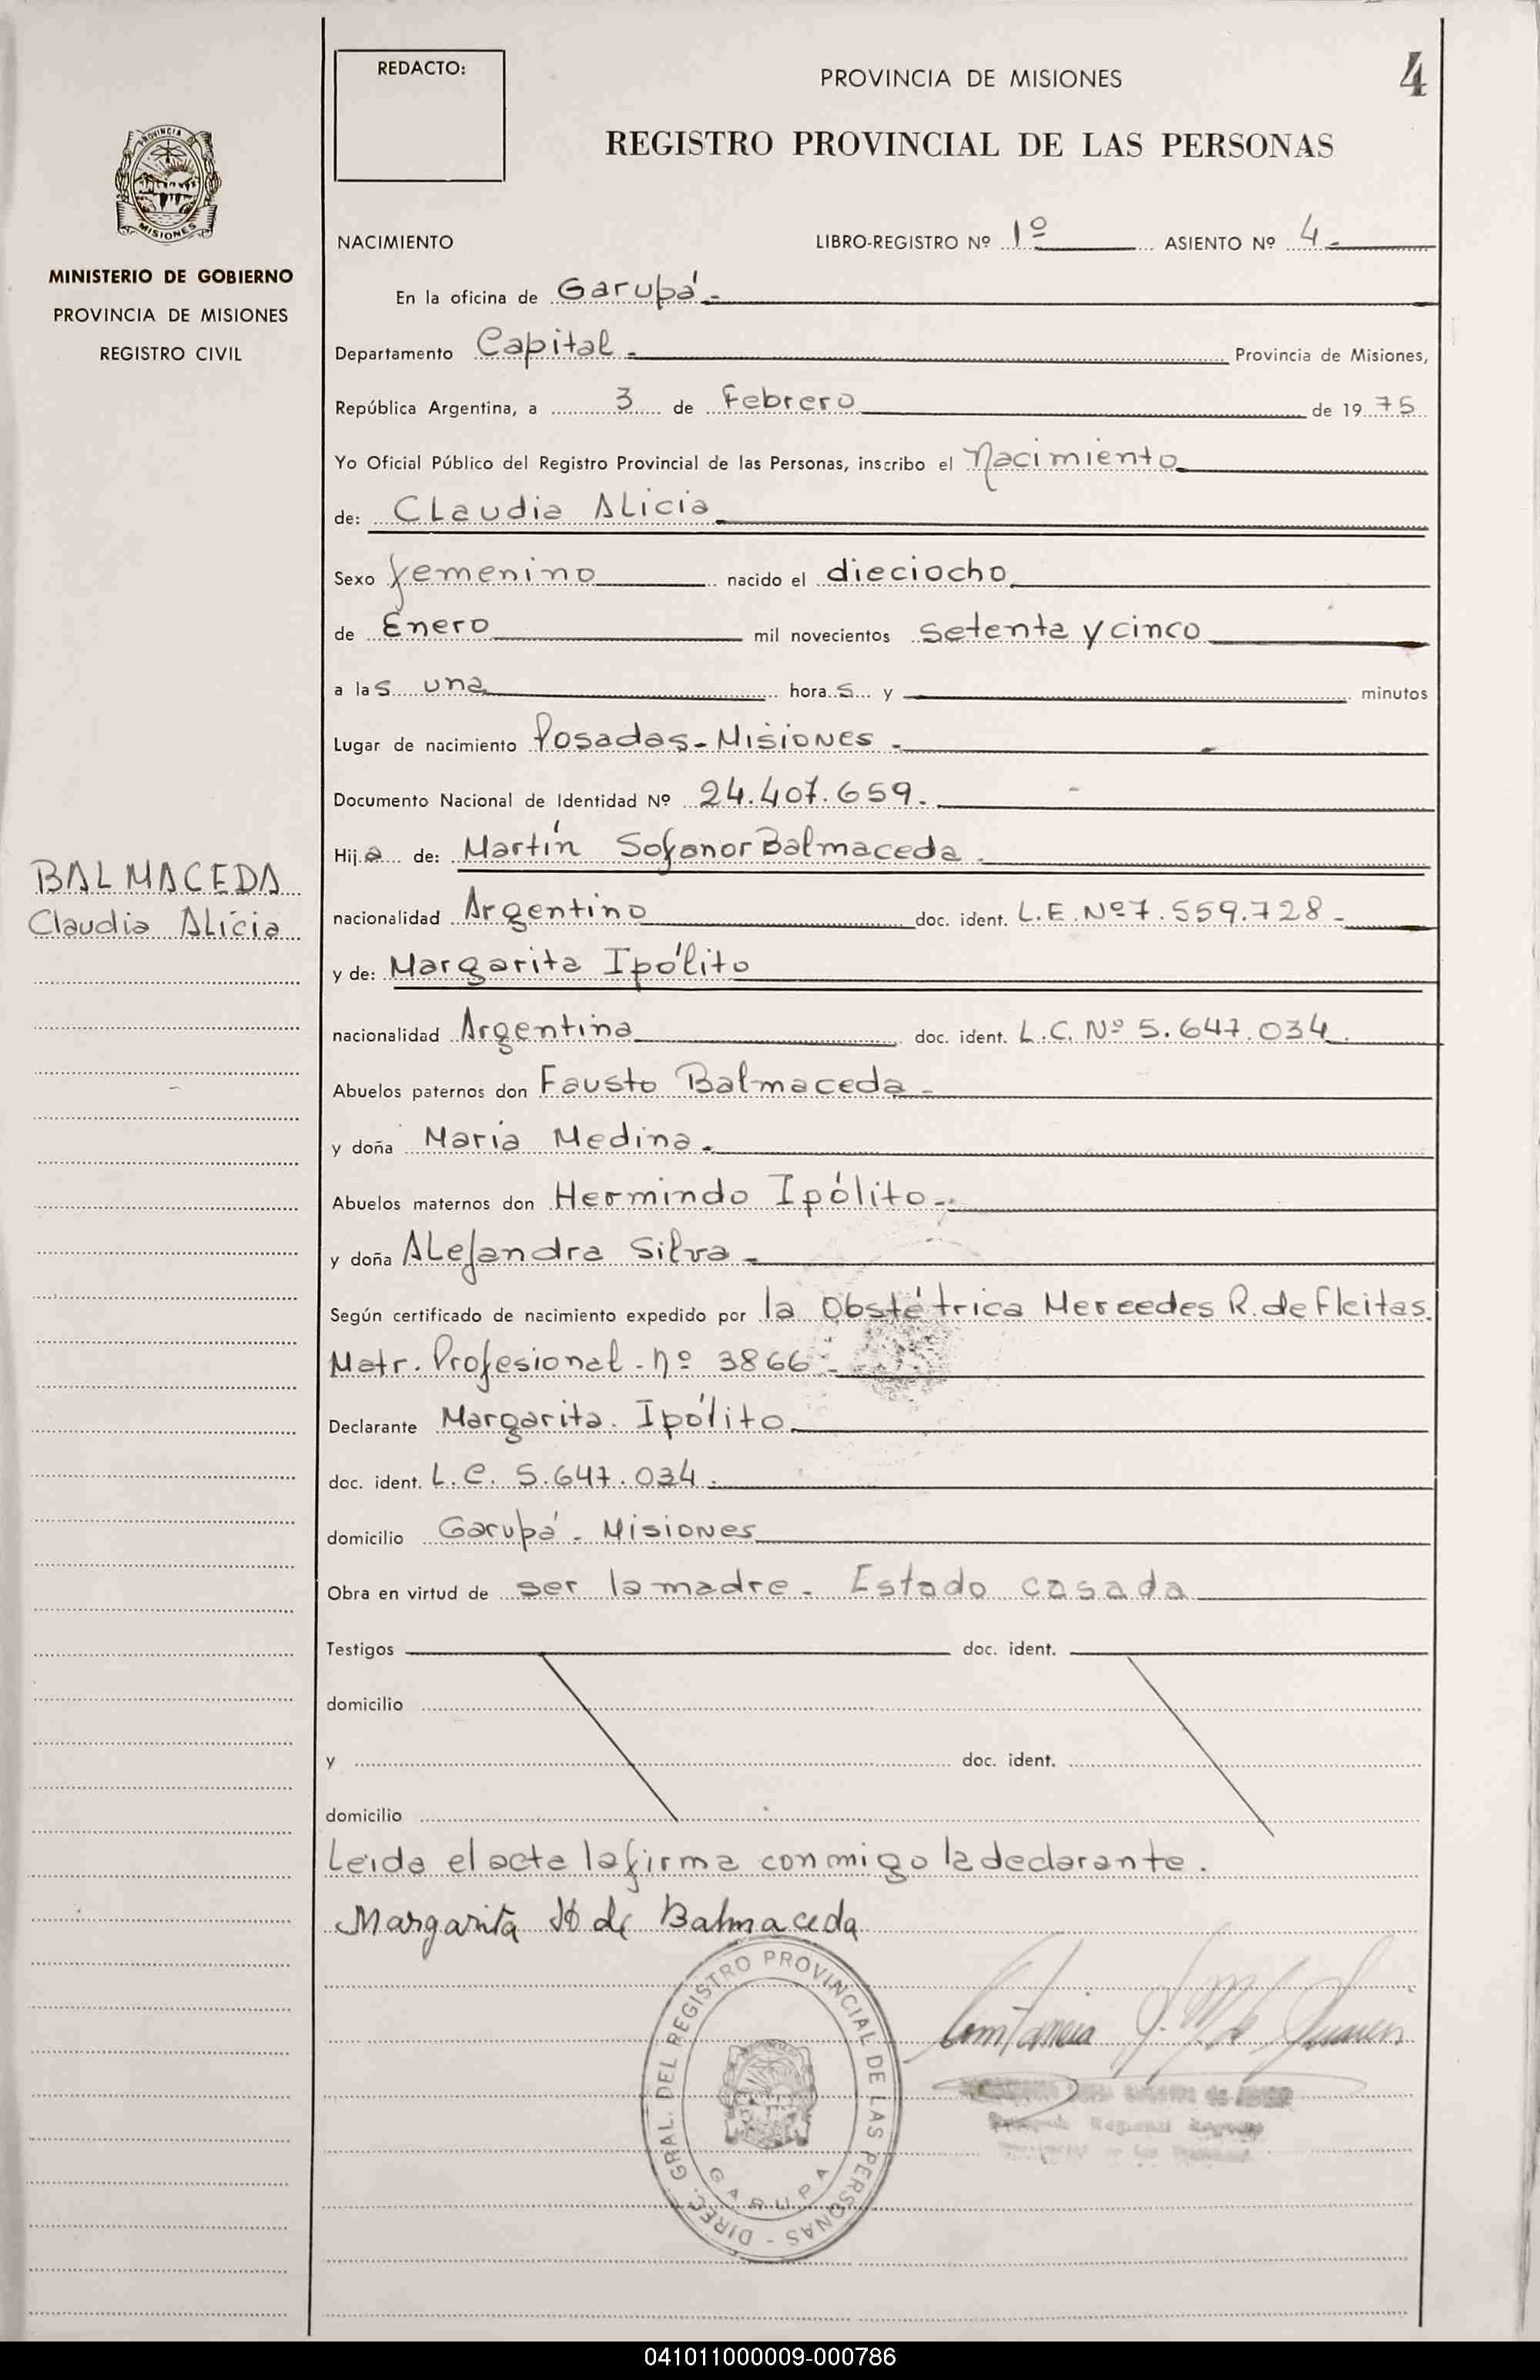 REDACTO:
PROVINCIA DE MISIONES
4
REGISTRO PROVINCIAL DE LAS PERSONAS
PROVINCIA DE
MISIONES
MINISTERIO DE GOBIERNO
PROVINCIA DE MISIONES
REGISTRO CIVIL
NACIMIENTO LIBRO-REGISTRO Nº 1º ASIENTO Nº 4.
En la oficina de Garupá.
Departamento Capital. Provincia de Misiones,
República Argentina, a 3 de Febrero de 1975
Yo Oficial Público del Registro Provincial de las Personas, inscribo el Nacimiento
de: Claudia Alicia
Sexo femenino nacido el dieciocho
de Enero mil novecientos setenta y cinco
a las una horas y minutos
Lugar de nacimiento Posadas-Misiones.
Documento Nacional de Identidad Nº 24.407.659.
Hija de: Martín Sofanor Balmaceda.
BALMACEDA
Claudia Alicia
nacionalidad Argentino doc. ident. L.E. Nº 7.559.728-
y de: Margarita Ipólito
nacionalidad Argentina doc. ident. L.C. Nº 5.647.034.
Abuelos paternos don Fausto Balmaceda-
y doña María Medina.
Abuelos maternos don Hermindo Ipólito-
y doña Alejandra Silva-
Según certificado de nacimiento expedido por la Obstétrica Mercedes R. de Fleitas.
Matr. Profesional-nº 3866-
Declarante Margarita. Ipólito
doc. ident. L.C. 5.647.034.
domicilio Garupá-Misiones
Obra en virtud de ser la madre- Estado casada
Testigos doc. ident.
domicilio
y doc. ident.
domicilio
Leida el acta la firma conmigo la declarante.
Margarita de Balmaceda
DIREC. GRAL. DEL REGISTRO PROVINCIAL DE LAS PERSONAS -
GARUPA
041011000009-000786